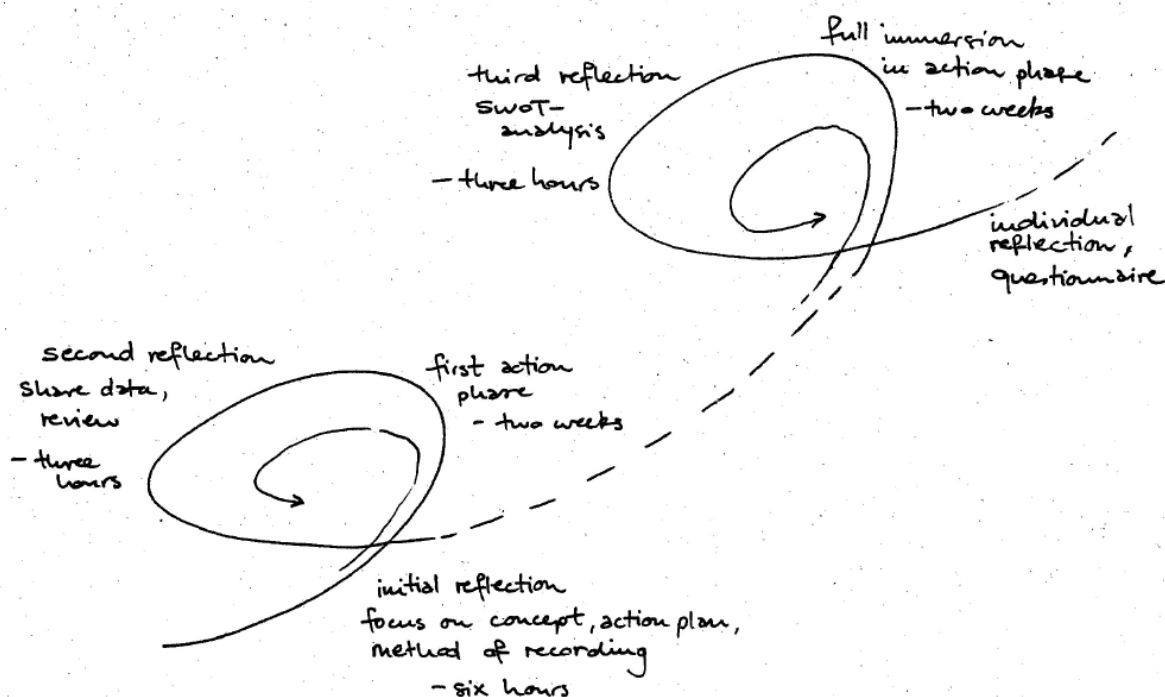 full immersion
in action phase
- two weeks
third reflection
SWOT-
analysis
- three hours
individual
reflection,
questionnaire
second reflection
share data,
review
- three
hours
first action
phase
- two weeks
initial reflection
focus on concept, action plan,
method of recording
- six hours